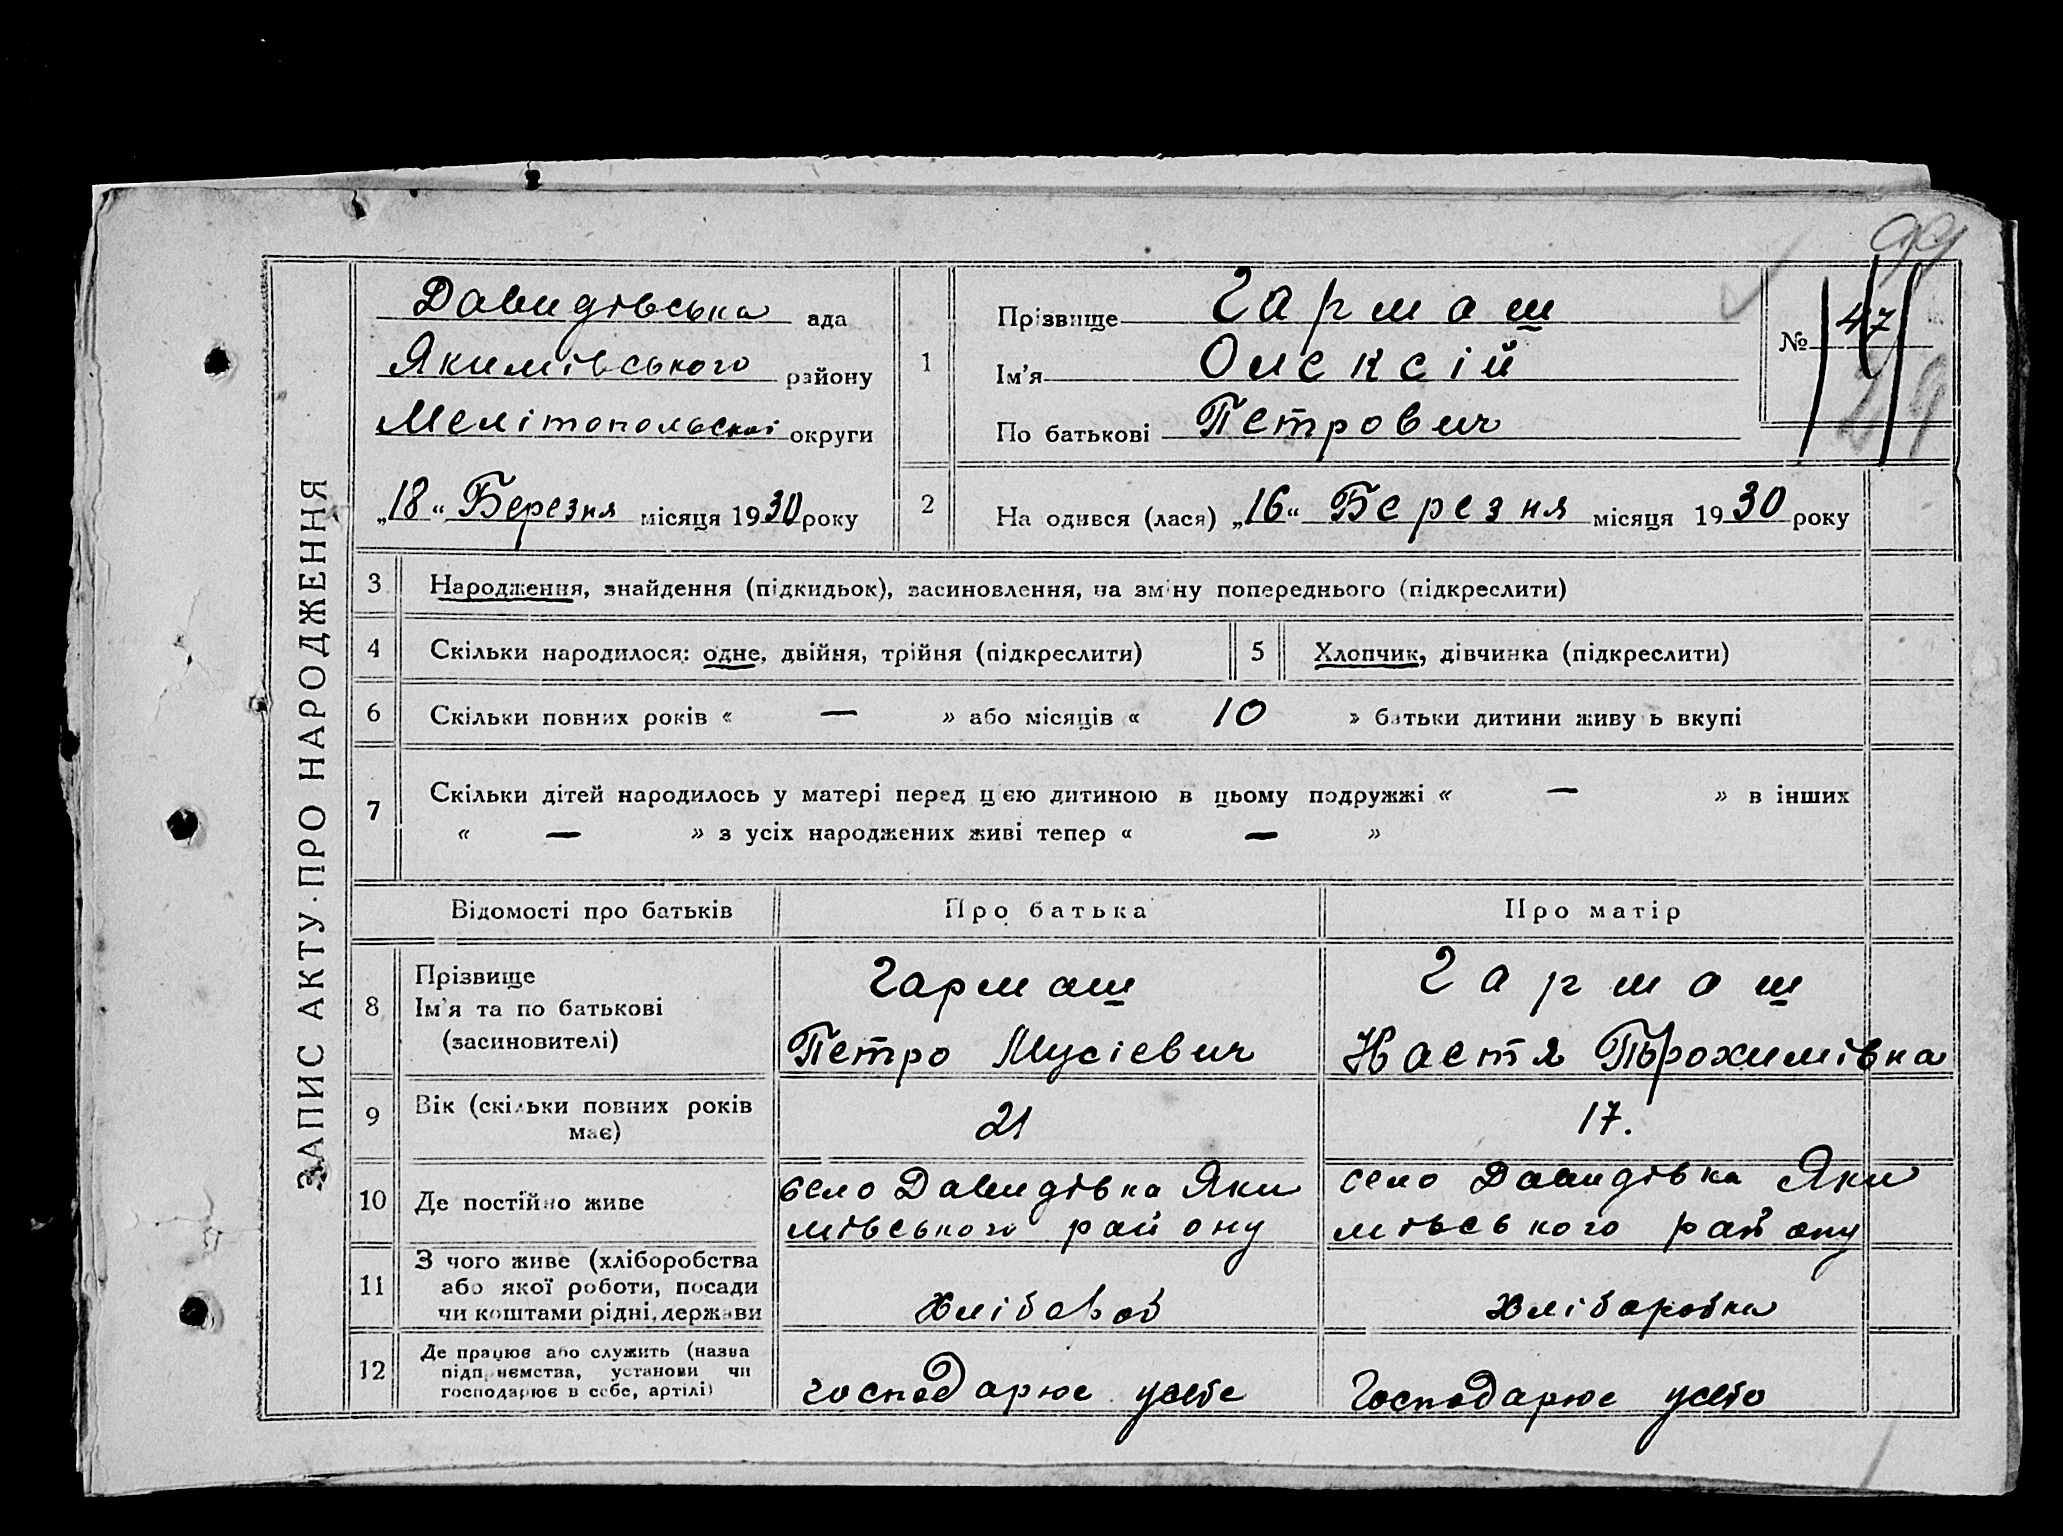 99
ЗАПИС АКТУ ПРО НАРОДЖЕННЯ
Давидівська ада
Якимівського району
Мелітопольскої округи
„18“ Березня місяця 1930 року
1
Прізвище Гармаш
Ім'я Олексій
По батькові Петрович
№ 47
29
2 На одився (лася) „16“ Березня місяця 1930 року
3 Народження, знайдення (підкидьок), засиновлення, на зміну попереднього (підкреслити)
4 Скільки народилося: одне, двійня, трійня (підкреслити)
5 Хлопчик, дівчинка (підкреслити)
6 Скільки повних років « — » або місяців « 10 » батьки дитини живу ь вкупі
7 Скільки дітей народилось у матері перед цією дитиною в цьому подружжі « — » в інших
« — » з усіх народжених живі тепер « — »
Відомості про батьків Про батька Про матір
8 Прізвище
Ім'я та по батькові
(засиновителі)
Гармаш
Петро Мусієвич
Гармаш
Настя Трохимівна
9 Вік (скільки повних років
має)
21
17.
10 Де постійно живе
село Давидівка Яки
мівського району
село Давидівка Яки
мівського району
11 З чого живе (хліборобства
або якої роботи, посади
чи коштами рідні, держави
Хлібороб
Хліборобка
12 Де працює або служить (назва
підприємства, установи чи
господарює в себе, артілі)
господарює усебе
Господарює усебе